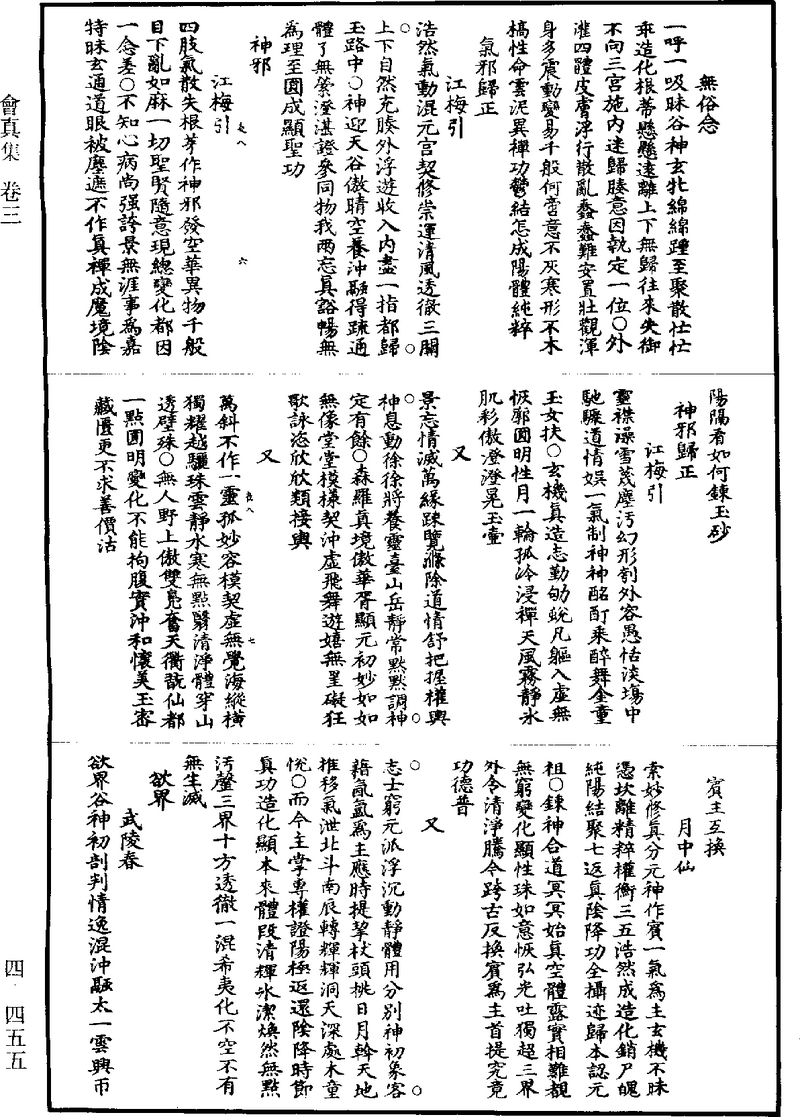 會真集 卷三
四·四五五
無俗念
一呼一吸昧谷神玄牝綿綿踵至聚散忙忙
乖造化根蒂懸懸遠離上下無歸往來失御
不向三宮施內迷歸腠意因執定一位○外
灌四體皮膚浮行散亂蠢蠢難安置壯觀渾
身多震動變易千般何啻意不灰寒形不木
槁性命雲泥異禪功鬱結怎成陽體純粹
氣邪歸正
江梅引
浩然氣動混元宮契修崇運清風透徹三關
上下自然充腠外浮遊收入內盡一指都歸
玉路中○神迎天谷傲晴空養沖融得疏通
體了無縈澄湛證參同物我兩忘真豁暢無
為理至圓成顯聖功
神邪
江梅引
四肢氣散失根芽作神邪發空華異物千般
目下亂如麻一切聖賢隨意現總變化都因
一念差○不知心病尚強誇景無涯事為嘉
特昧玄通道眼被塵遮不作真禪成魔境陰
陽隔看如何鍊玉砂
神邪歸正
江梅引
靈襟澡雪蔑塵污幻形刳外容愚恬淡場中
馳驟道情娛一氣制神神酩酊乘醉舞金童
玉女扶○玄機真造志勤劬蛻凡軀入虛無
恢廓圓明性月一輪孤冷浸禪天風霧靜冰
肌彩傲澄澄晃玉壺
又
景忘情滅萬緣疎覽滌除道情舒把握權輿
神息動徐徐將養靈臺山岳靜常默默調神
定有餘○森羅真境傲華胥顯元初妙如如
無像堂堂模樣契沖虛飛舞遊嬉無罣礙狂
歌詠恣欣欣類接輿
又
萬斜不作一靈孤妙容模契虛無覺海縱橫
獨耀越驪珠雲靜水寒無點翳清淨體穿山
透壁殊○無人野上傲雙鳧奮天衢翫仙都
一點圓明變化不能拘腹實沖和懷美玉密
藏匱更不求善價沽
賓主互換
月中仙
索妙修真分元神作賓一氣為主玄機不昧
憑坎離精粹權衡三五浩然成造化銷尸魄
純陽結聚七返真陰降功全攝迹歸本認元
祖○鍊神合道冥冥始真空體露實相難覩
無窮變化顯性珠如意恢弘光吐獨超三界
外令清淨騰今跨古反換賓為主首提究竟
功德普
又
志士窮元派浮沉動靜體用分別神初象客
藉氤氳為主應時提挈杖頭挑日月斡天地
推移氣泄北斗南辰轉輝輝洞天深處木童
悅○而今主掌專權證陽極返還陰降時節
真功造化顯本來體段清輝冰潔煥然無點
污罄三界十方透徹一混希夷化不空不有
無生滅
欲界
武陵春
欲界谷神初剖判情逸混沖融太一雲興帀